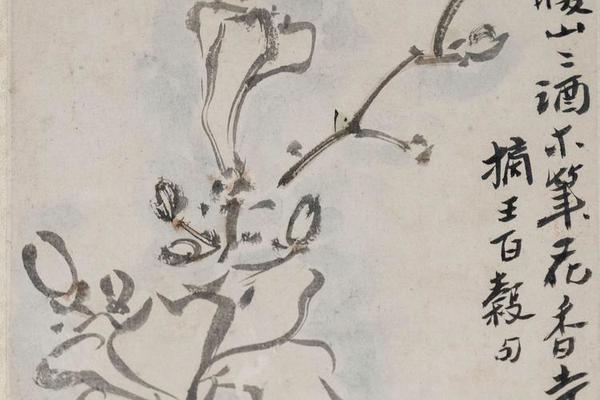 山〻酒木筆花香
摘王百穀句